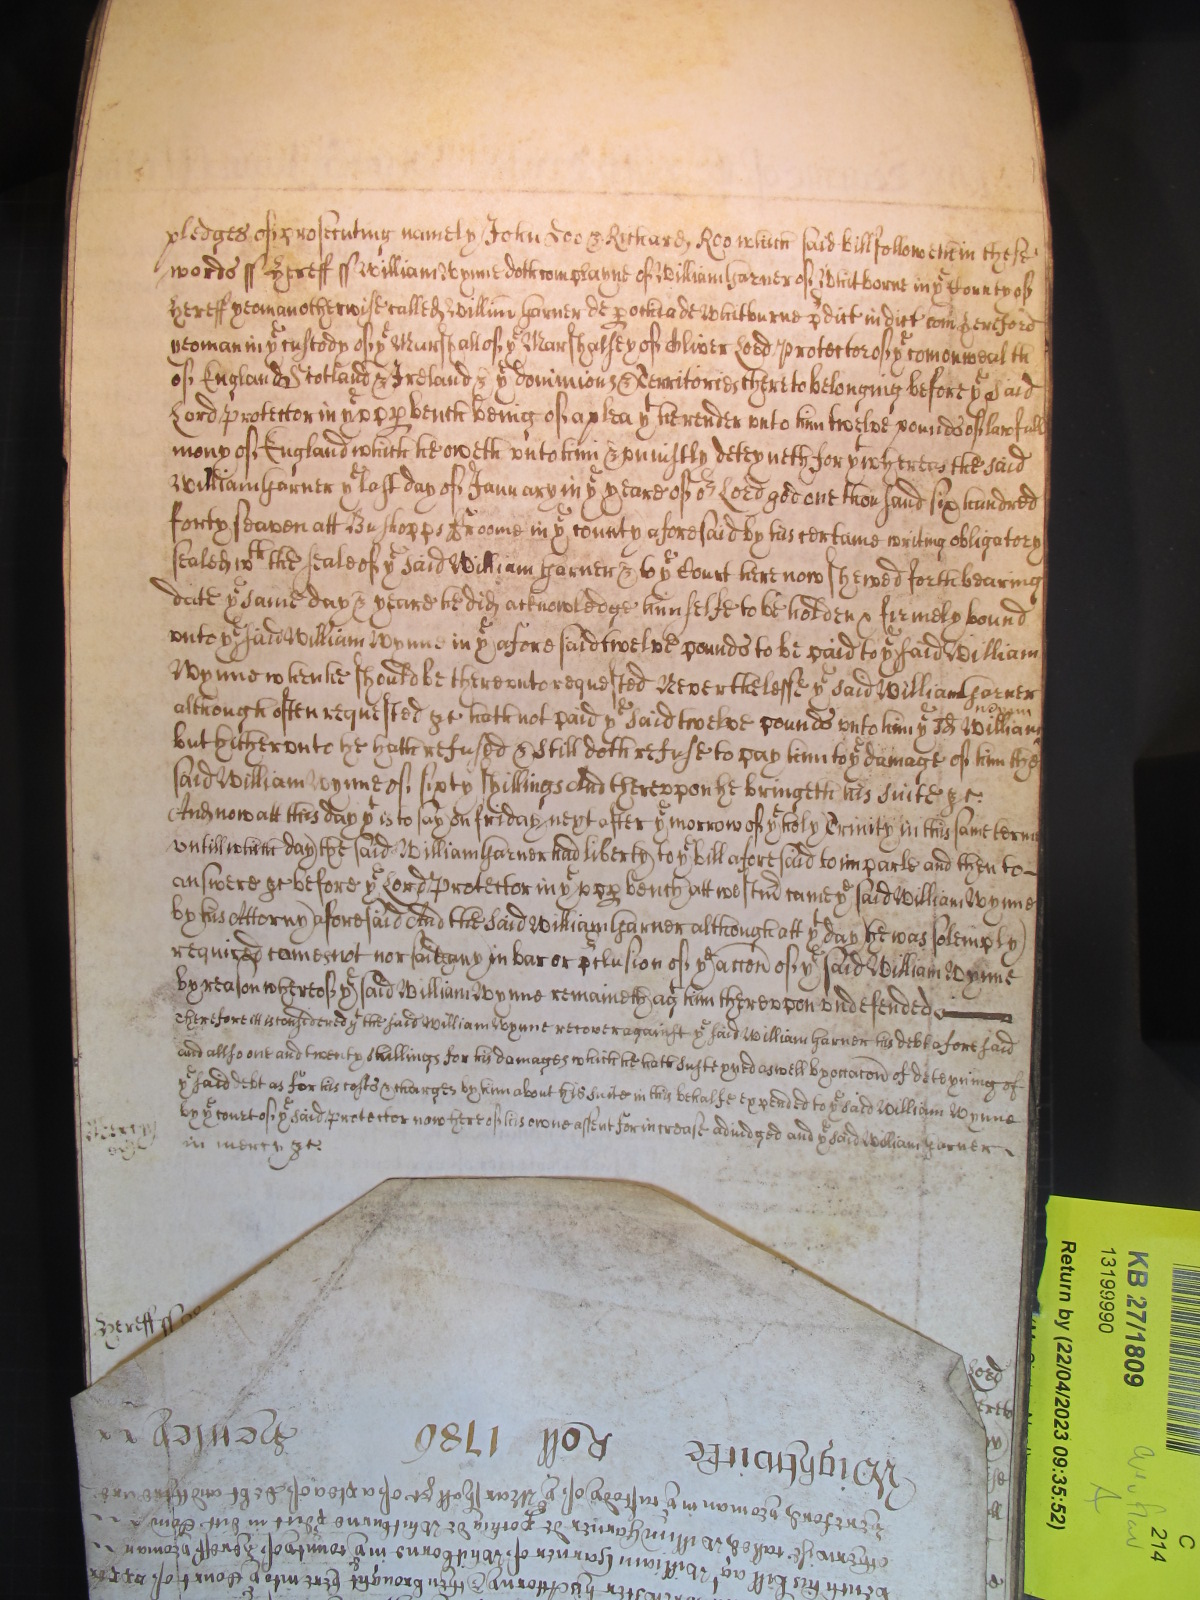 pledges of prosecuting namely John Doo & Richard Roo which said bill followeth in these
words ss Hereff ss William Wynne doth complayne of William Garner of Whitborne in ye County of
Hereff yeoman otherwise called Willim Garner de pochia de Whitburne pdict in dict com Hereford
yeoman in ye custody of ye Marshall of ye Marshalsey of Oliver Lord Protector of ye comonwealth
of England Scotland & Ireland & ye dominions & Territories thereto belonging before ye said
Lord Protector in ye upp bench being of a plea yt he render unto him twelve pounds of lawfull
mony of England which he oweth unto him & uniustly deteyneth for yt whereas the said
William Garner ye last day of January in ye yeare of or Lord god one thousand six hundred
forty seaven att Bushopps Froome in ye county aforesaid by his certaine writing obligatory
sealed wth the seale of ye said William Garner & to ye Court here now shewed forth bearing
date ye same day & yeare he did acknowledge himselfe to be holden & firmely bound
unto ye said William Wynne in ye aforesaid twelve pounds to be paid to ye said William
Wynne when he should be thereunto requested Neverthelesse ye said William Garner
although often requested &c hath not paid ye said twelve pounds unto him ye sd William
but hitherunto he hath refused & still doth refuse to pay him to ye damage of him the
said William Wynne of sixty shillings And thereupon he bringeth his suite &c
And now att this day yt is to say on friday next after ye morrow of ye holy Trinity in this same terme
untill which day the said William Garner had liberty to ye bill aforesaid to imparle and then to
answere &c before ye Lord Protector in ye upp bench att westmr came ye said William Wynne
by his Attorny aforesaid And the said William Garner although att yt day he was solemply
required comes not nor saith any in bar or pclusion of ye accon of ye said William Wynne
by reason whereof ye said William Wynne remaineth agt him thereupon undefended
Therefore itt is considered yt the said William Wynne recover against ye said William Garner his debt aforesaid
and allso one and twenty shillings for his damages which he hath susteyned aswell by occacon of deteyning of
ye said debt as for his costs & charges by him about his suite in this behalfe expended to ye said William Wynne
by ye court of ye said Protector now here of his owne assent for increase adiudged and ye said William Garner
Mercy
in mercy &c
Hereff ss
Lord
Wightwicke Roll 1786 Henley
Hereford yeoman in ye custody of ye Marshall &c of a plea of debt and there are
otherwise called Willim Garner de pochia de Whitburne pdict in dict Com
beneth his bill agt William Garner of Whitborne in ye county of Hereff yeoman
by his Attorny & then brought here into ye Court of
KB 27/1809
13199990
Return by (22/04/2023 09:35:52)
C
214